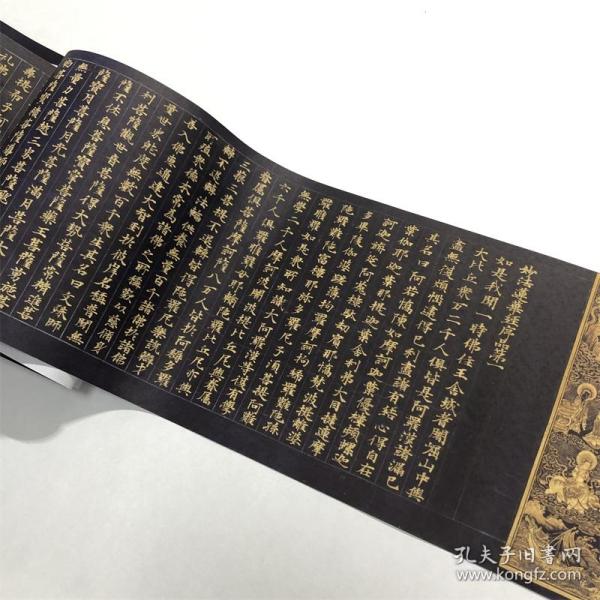 妙法蓮華經序品第一
如是我聞一時佛住王舍城耆闍崛山中與
大比丘衆萬二千人俱皆是阿羅漢諸漏已
盡無復煩惱逮得己利盡諸有結心得自在
其名曰阿若憍陳如摩訶迦葉優樓頻螺迦
葉伽耶迦葉那提迦葉舍利弗大目揵連摩
訶迦旃延阿㝹樓馱劫賓那憍梵波提離婆
多畢陵伽婆蹉薄拘羅摩訶拘絺羅難陀孫
陀羅難陀富樓那彌多羅尼子須菩提阿難
羅睺羅如是衆所知識大阿羅漢等復有學
無學二千人摩訶波闍波提比丘尼與眷屬
六千人俱羅睺羅母耶輸陀羅比丘尼亦與
眷屬俱菩薩摩訶薩八萬人皆於阿耨多羅
三藐三菩提不退轉皆得陀羅尼樂說辯才
轉不退轉法輪供養無量百千諸佛於諸佛
所殖衆德本常爲諸佛之所稱歎以慈修身
善入佛慧通達大智到於彼岸名稱普聞無
量世界能度無數百千衆生其名曰文殊師
利菩薩觀世音菩薩得大勢菩薩常精進菩
薩不休息菩薩寶掌菩薩藥王菩薩勇施菩
薩寶月菩薩月光菩薩滿月菩薩大力菩薩
無量力菩薩越三界菩薩
孔夫子旧书网
www.kongfz.com